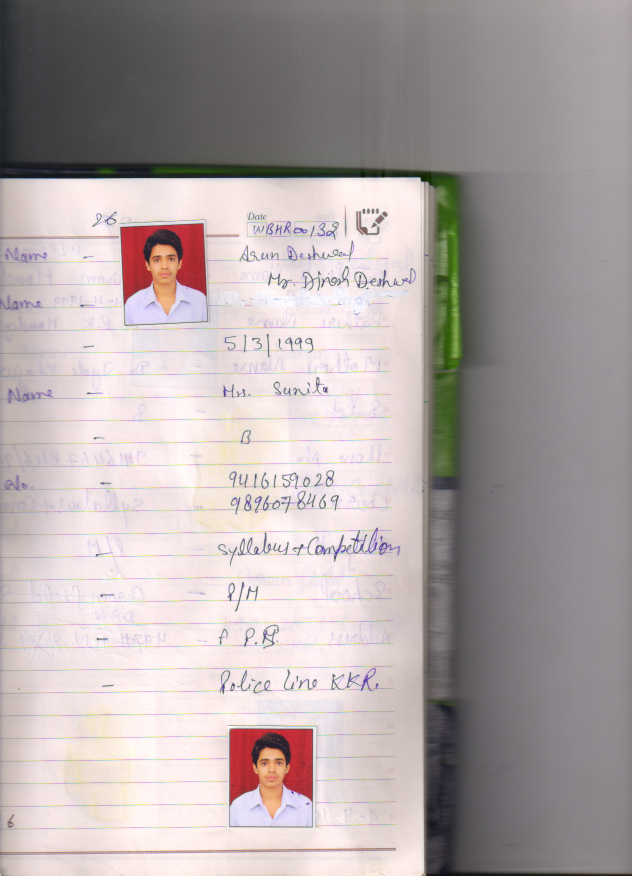 26
Date
WBHR00132
Name - Arun Deshwal
Name - Mr. Dinesh Deshwal
- 5/3/1999
Name - Mrs. Sunita
- B
No. - 9416159028
9896078469
- Syllabus + Competition
- P/M
-
- Police Line KKR.
6